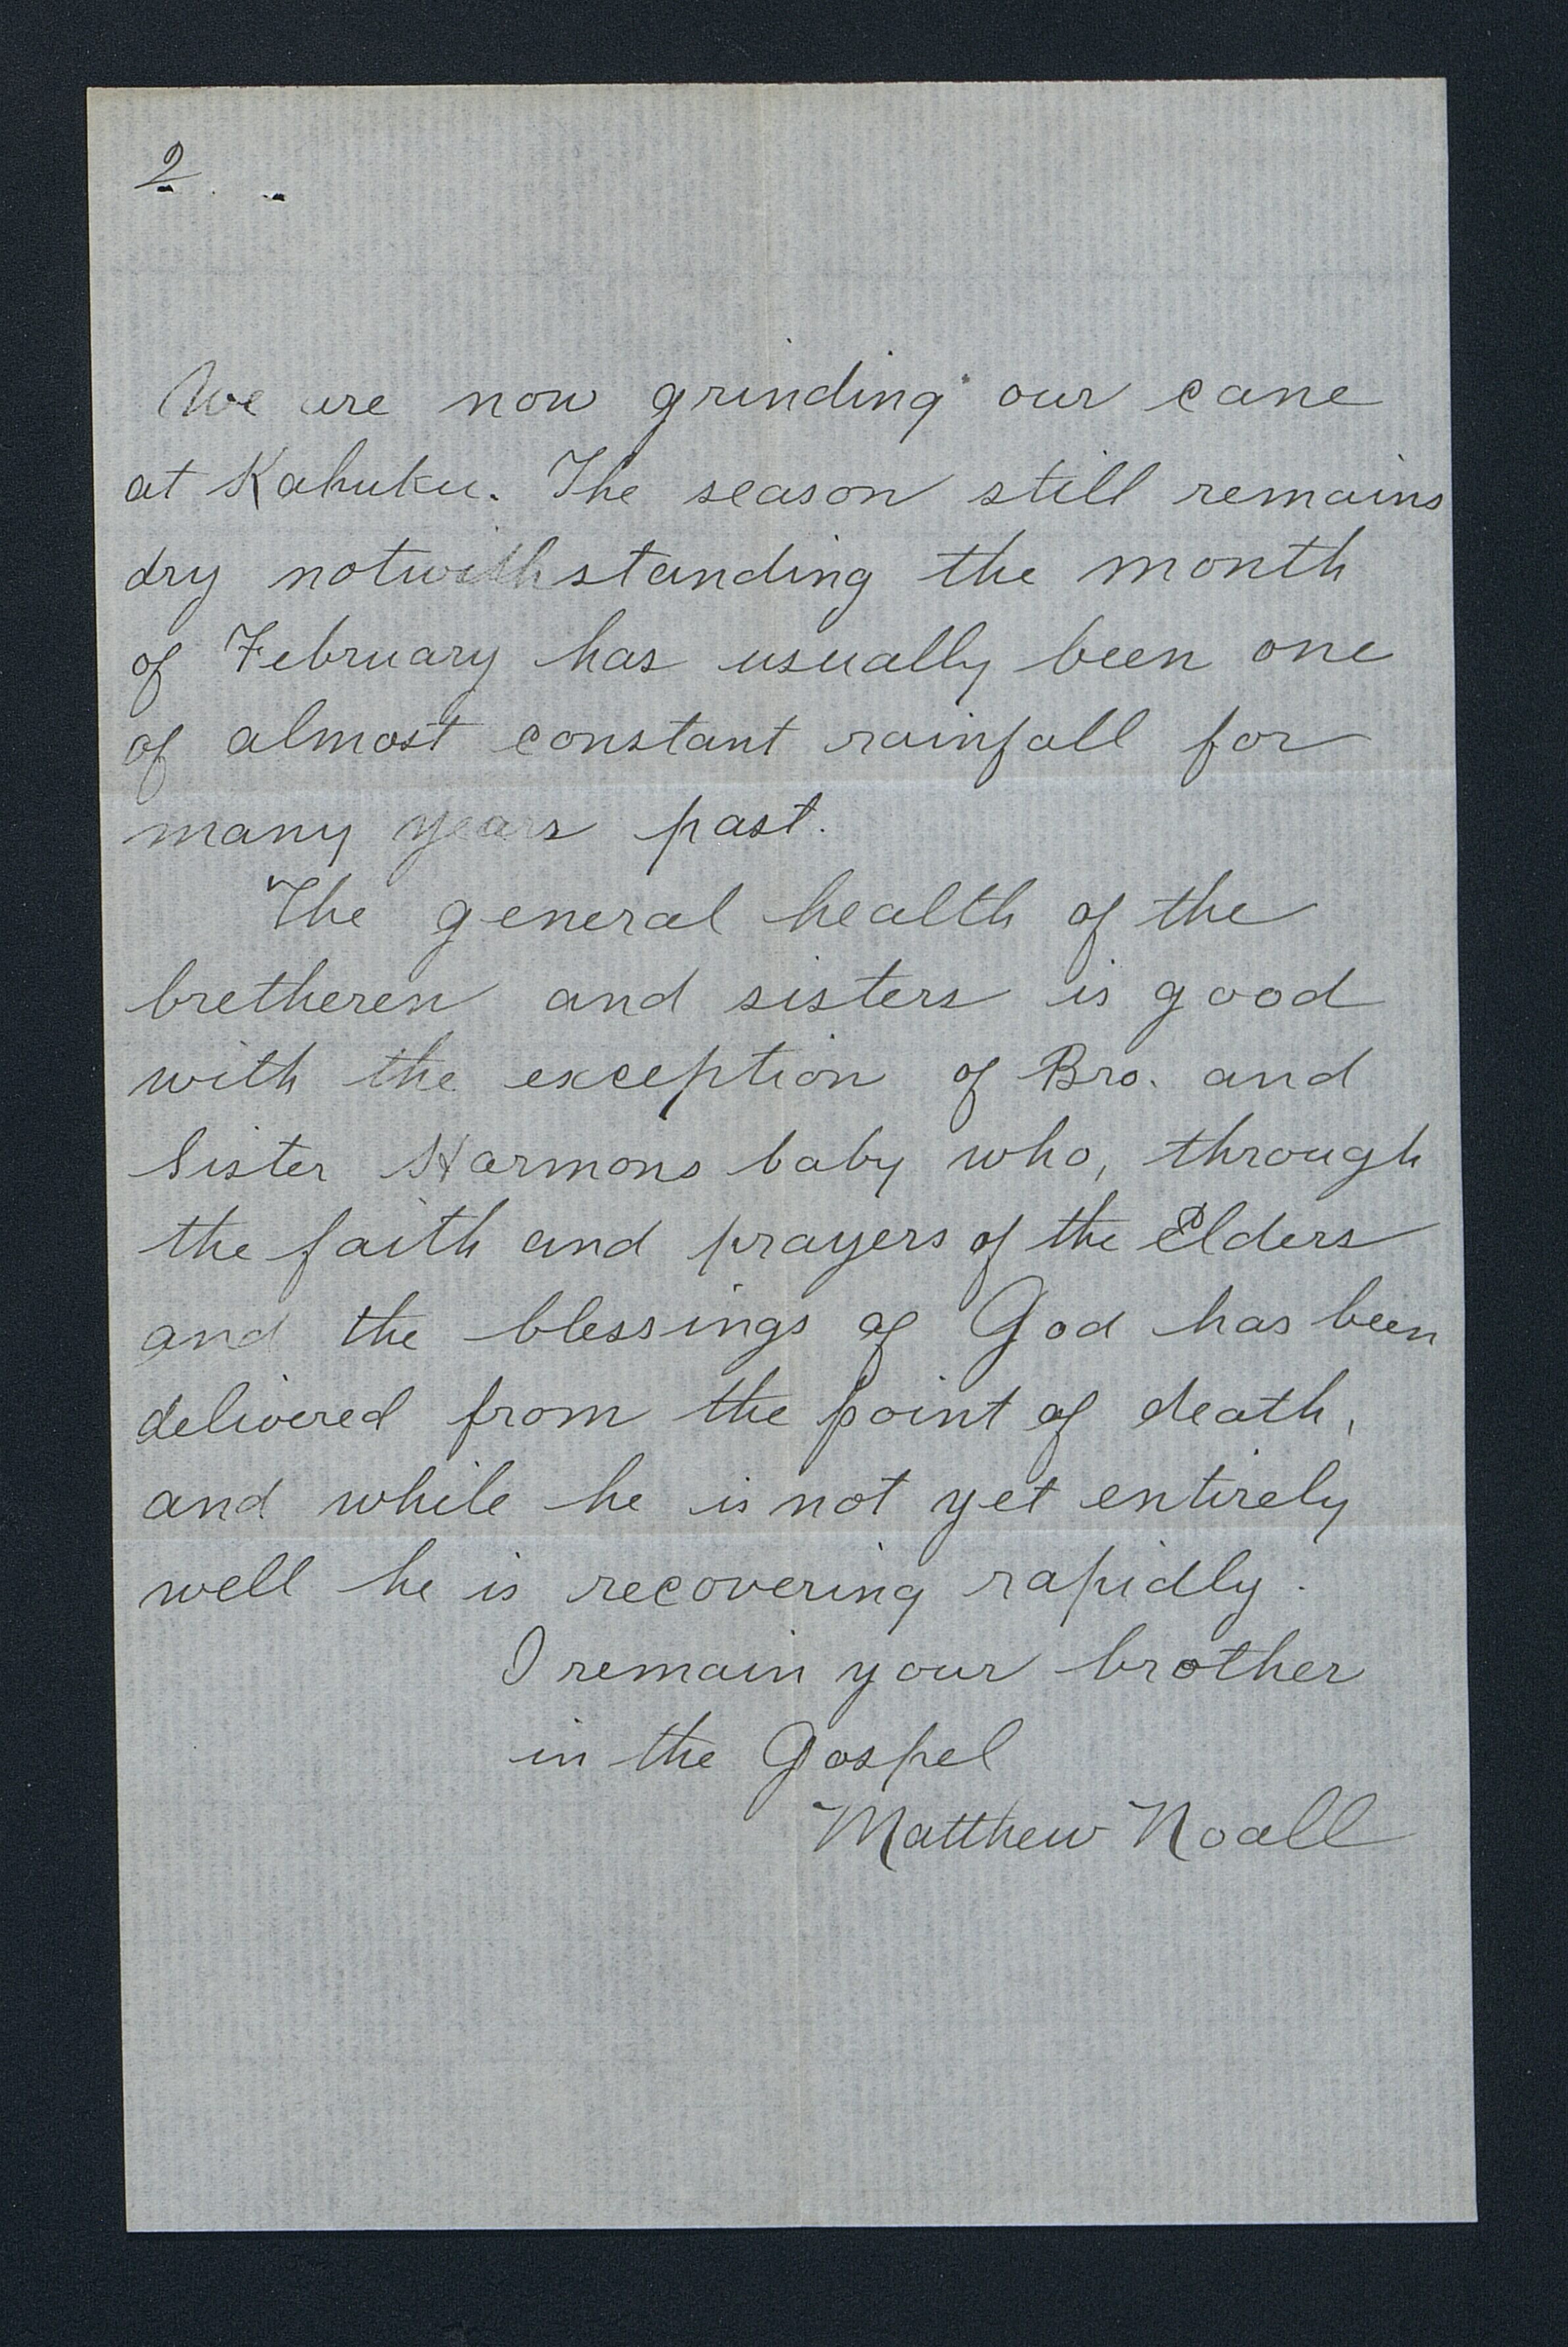 2
We are now grinding our cane
at Kahuku. The season still remains
dry notwithstanding the month
of February has usually been one
of almost constant rainfall for
many years past.
The general health of the
bretheren and sisters is good
with the exception of Bro. and
Sister Harmons baby who, through
the faith and prayers of the Elders
and the blessings of God has been
delivered from the point of death,
and while he is not yet entirely
well he is recovering rapidly.
I remain your brother
in the Gospel
Matthew Noall